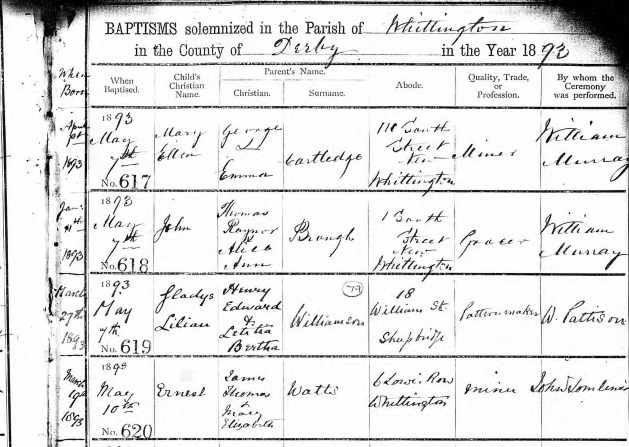 BAPTISMS solemnized in the Parish of Whittington
in the County of Derby in the Year 1893
When Born
When Baptised.
Child's Christian Name.
Parent's Name.
Christian.
Surname.
Abode.
Quality, Trade, or Profession.
By whom the Ceremony was performed.
1893
1893
May
7th
No. 617
Mary
Ellen
George
&
Emma
Cartledge
South
Street
New
Whittington
Miner
William
Murray
1893
1893
May
7th
No. 618
John
Thomas
Raynor
&
Alice
Ann
Brough
1 South
Street
New
Whittington
Grocer
William
Murray
March
27th
1893
1893
May
7th
No. 619
Gladys
Lilian
Henry
Edward
&
Letitia
Bertha
Williamson
79
18
William St.
Sheepbridge
Pattern maker
W. Pattison
March
1893
1893
May
10th
No. 620
Ernest
James
Thomas
Mary
Elizabeth
Watts
6 Row
Whittington
miner
John Tomlinson